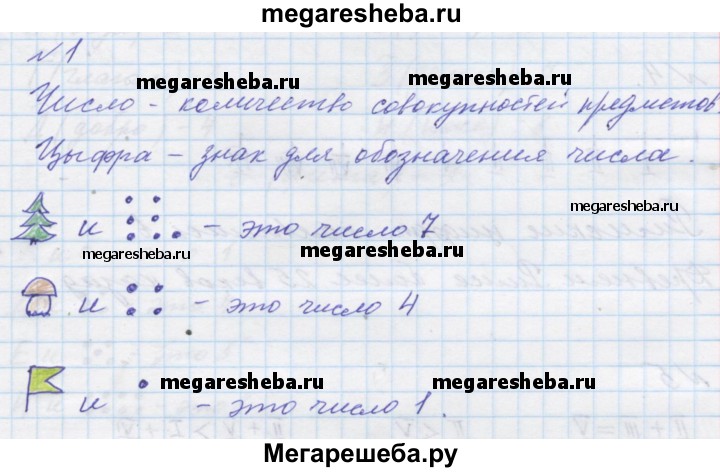 megaresheba.ru
№1
megaresheba.ru
Число - количество совокупностей предметов.
Цыфра - знак для обозначения числа.
megaresheba.ru
и - это число 7
megaresheba.ru megaresheba.ru
и - это число 4
megaresheba.ru megaresheba.ru
и - это число 1.
Мегарешеба.ру